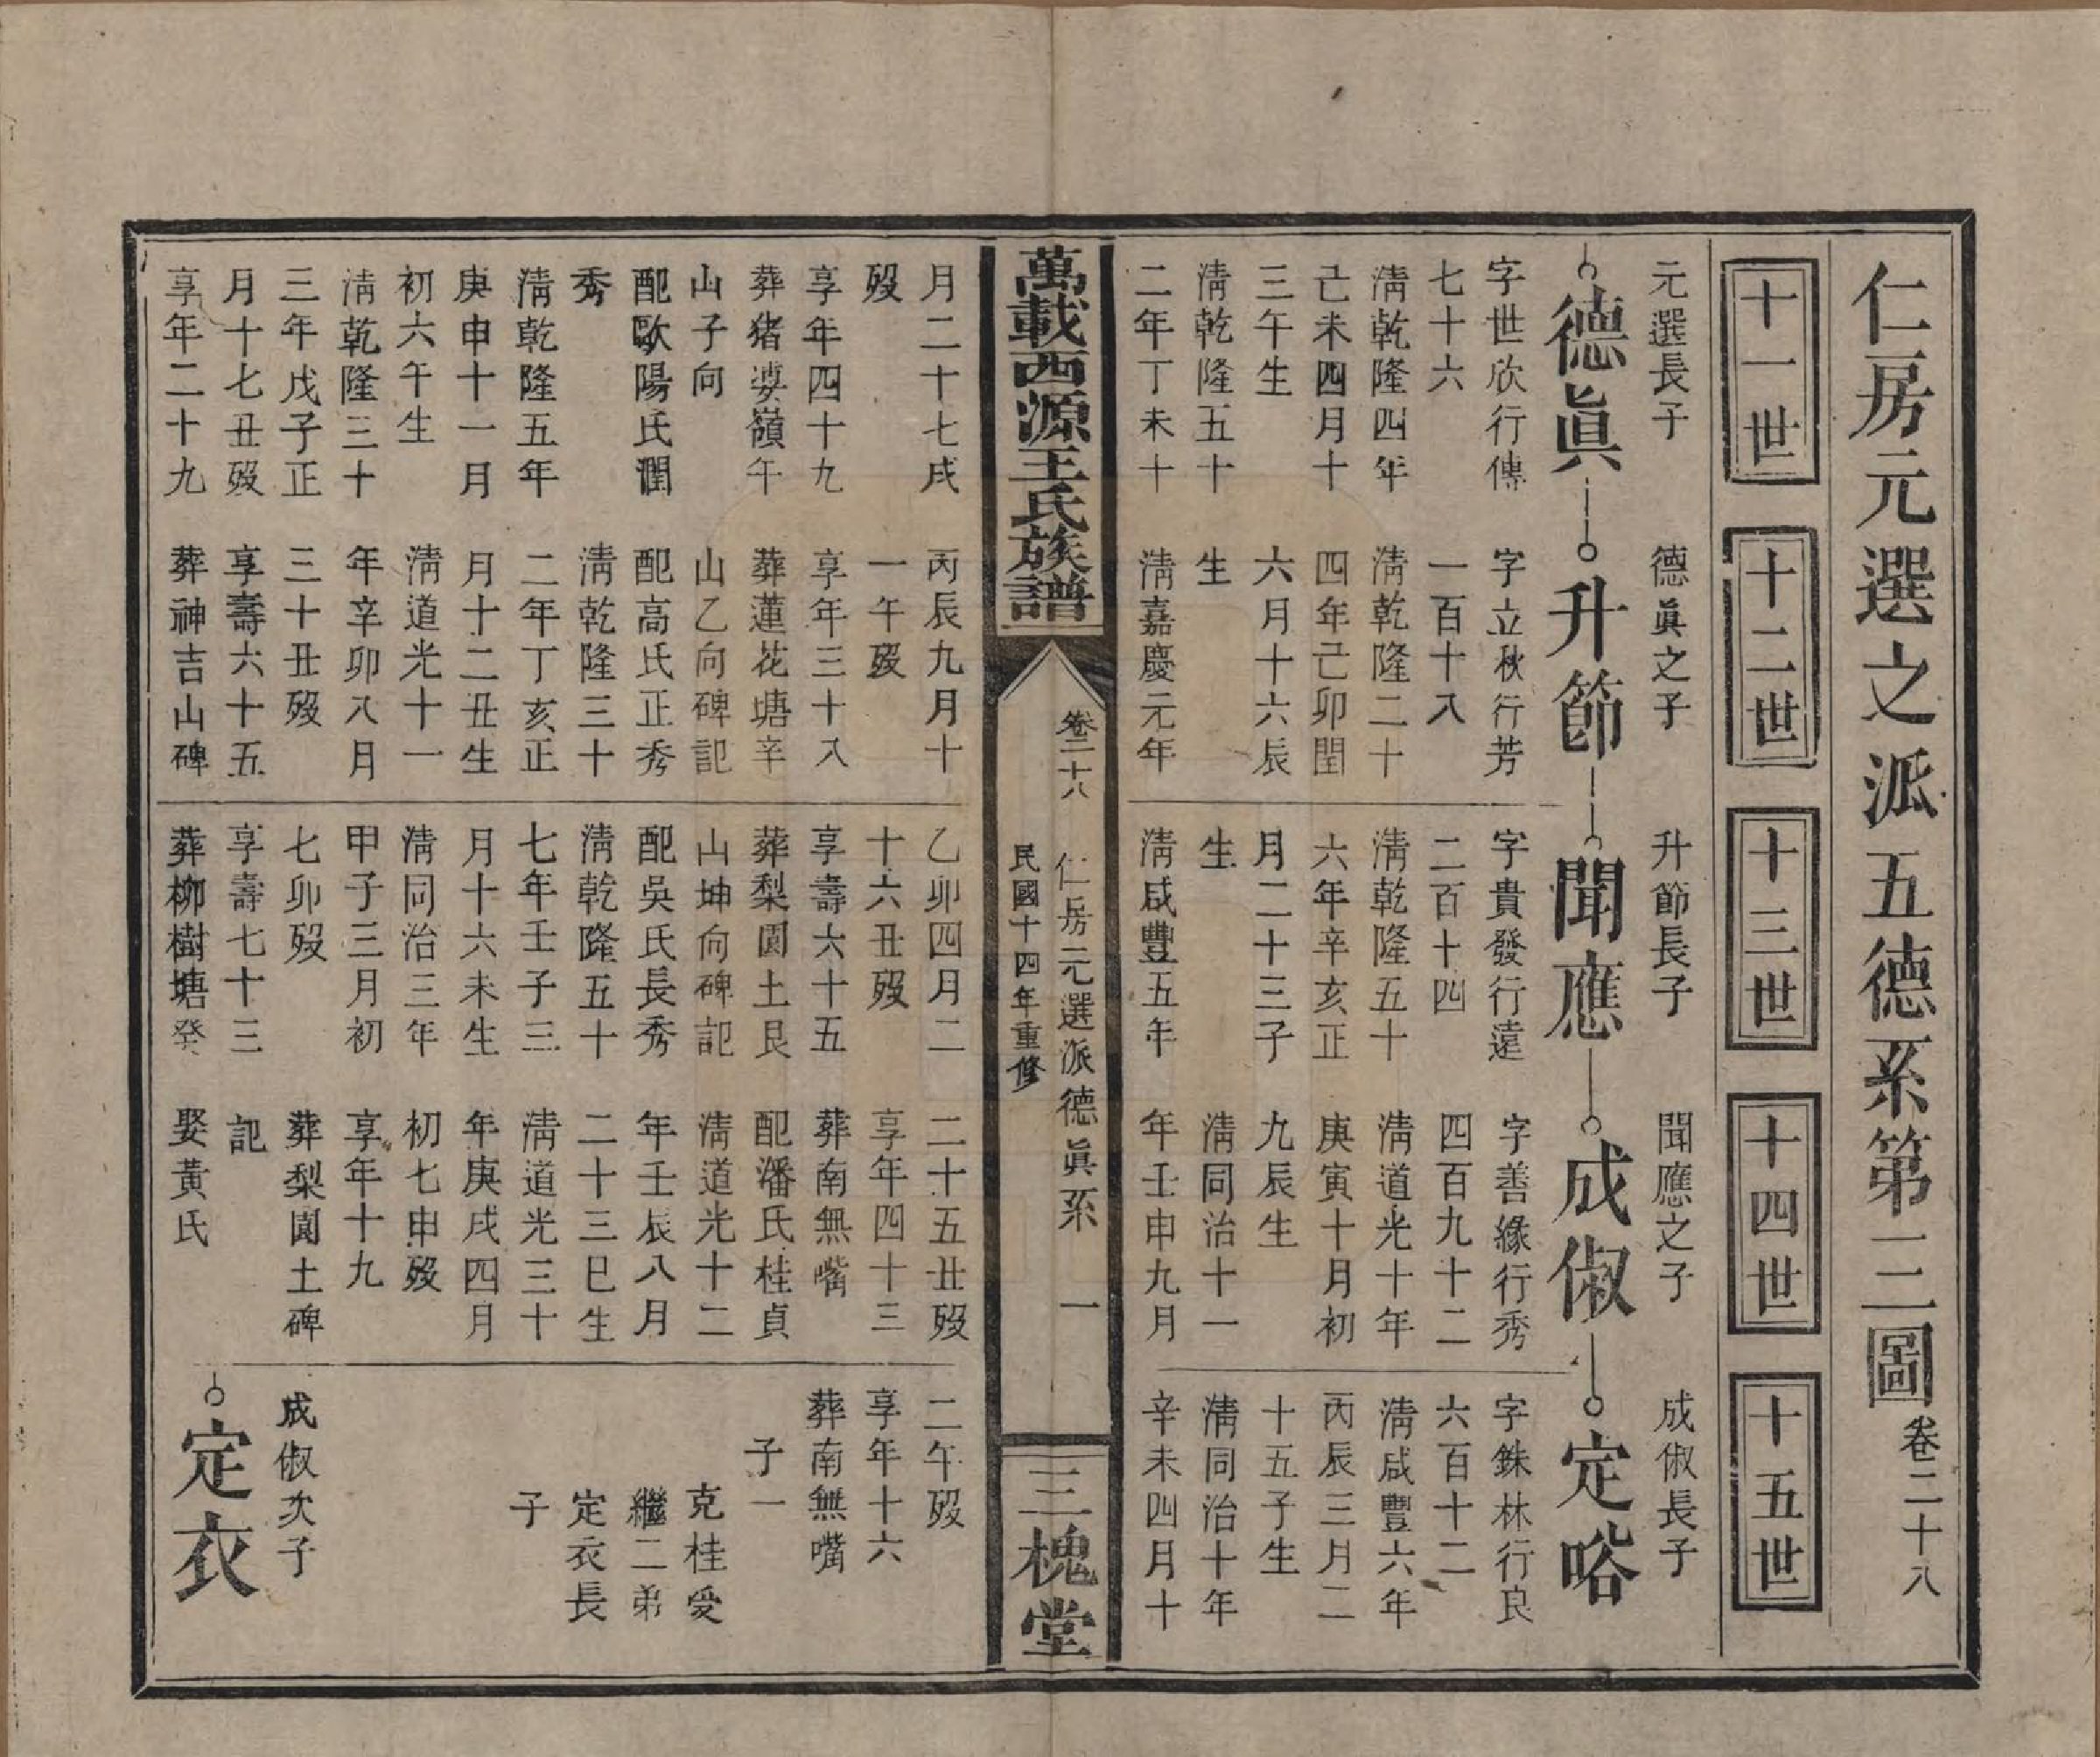 仁房元選之派五德系第一二圖卷二十八
十一世
十二世
十三世
十四世
十五世
元選長子
德眞
字世欣行傳
七十六
淸乾隆四年
己未四月十
三午生
淸乾隆五十
二年丁未十
德眞之子
升節
字立秋行芳
一百十八
淸乾隆二十
四年己卯閏
六月十六辰
生
淸嘉慶元年
升節長子
聞應
字貴發行遠
二百十四
淸乾隆五十
六年辛亥正
月二十三子
生
淸咸豐五年
聞應之子
成俶
字善緣行秀
四百九十二
淸道光十年
庚寅十月初
九辰生
淸同治十一
年壬申九月
成俶長子
定㗉
字銖林行良
六百十二
淸咸豐六年
丙辰三月二
十五子生
淸同治十年
辛未四月十
萬載西源王氏族譜
卷二十八 仁房元選派德眞系 一
民國十四年重修
三槐堂
月二十七戌
歿
享年四十九
葬猪婆嶺午
山子向
配歐陽氏閏
秀
淸乾隆五年
庚申十一月
初六午生
淸乾隆三十
三年戊子正
月十七丑歿
享年二十九
丙辰九月十
一午歿
享年三十八
葬蓮花塘辛
山乙向碑記
配高氏正秀
淸乾隆三十
二年丁亥正
月十二丑生
淸道光十一
年辛卯八月
三十丑歿
享壽六十五
葬神吉山碑
乙卯四月二
十六丑歿
享壽六十五
葬梨園土艮
山坤向碑記
配吳氏長秀
淸乾隆五十
七年壬子三
月十六未生
淸同治三年
甲子三月初
七卯歿
享壽七十三
葬柳樹塘癸
二十五丑歿
享年四十三
葬南無嘴
配潘氏桂貞
淸道光十二
年壬辰八月
二十三巳生
淸道光三十
年庚戌四月
初七申歿
享年十九
葬梨園土碑
記
娶黃氏
二午歿
享年十六
葬南無嘴
子一
克桂受
繼二弟
定衣長
子
成俶次子
定衣